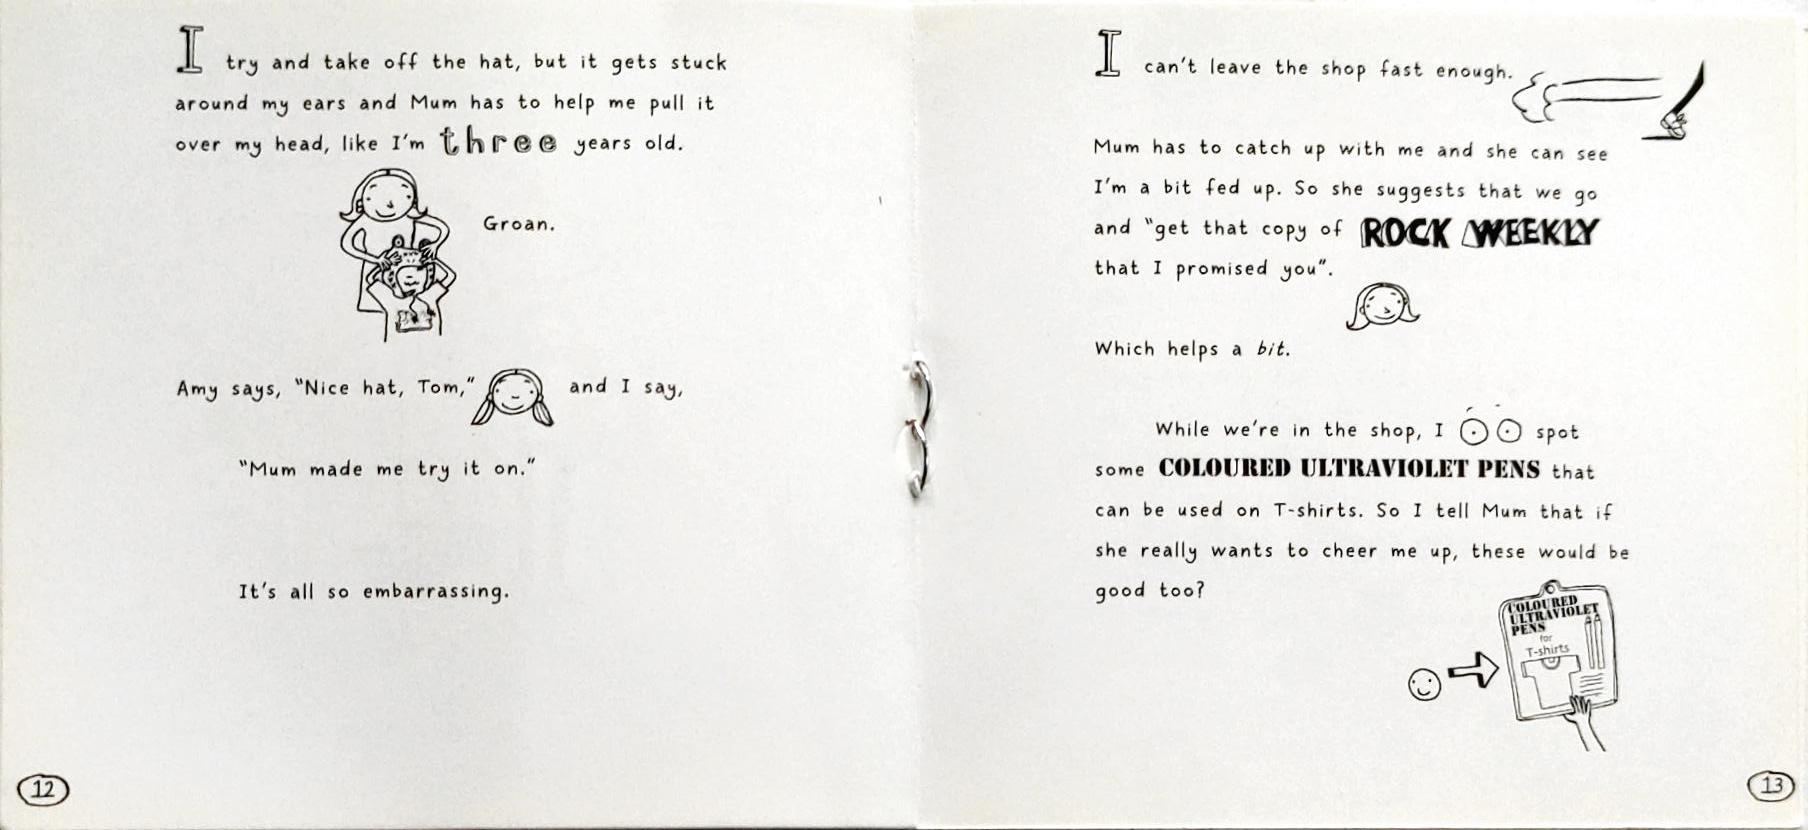 I try and take off the hat, but it gets stuck
around my ears and Mum has to help me pull it
over my head, like I'm three years old.
Groan.
Amy says, "Nice hat, Tom," and I say,
"Mum made me try it on."
It's all so embarrassing.
12
I can't leave the shop fast enough.
Mum has to catch up with me and she can see
I'm a bit fed up. So she suggests that we go
and "get that copy of ROCK WEEKLY
that I promised you".
Which helps a bit.
While we're in the shop, I spot
some COLOURED ULTRAVIOLET PENS that
can be used on T-shirts. So I tell Mum that if
she really wants to cheer me up, these would be
good too?
COLOURED
ULTRAVIOLET
PENS
for
T-shirts
13